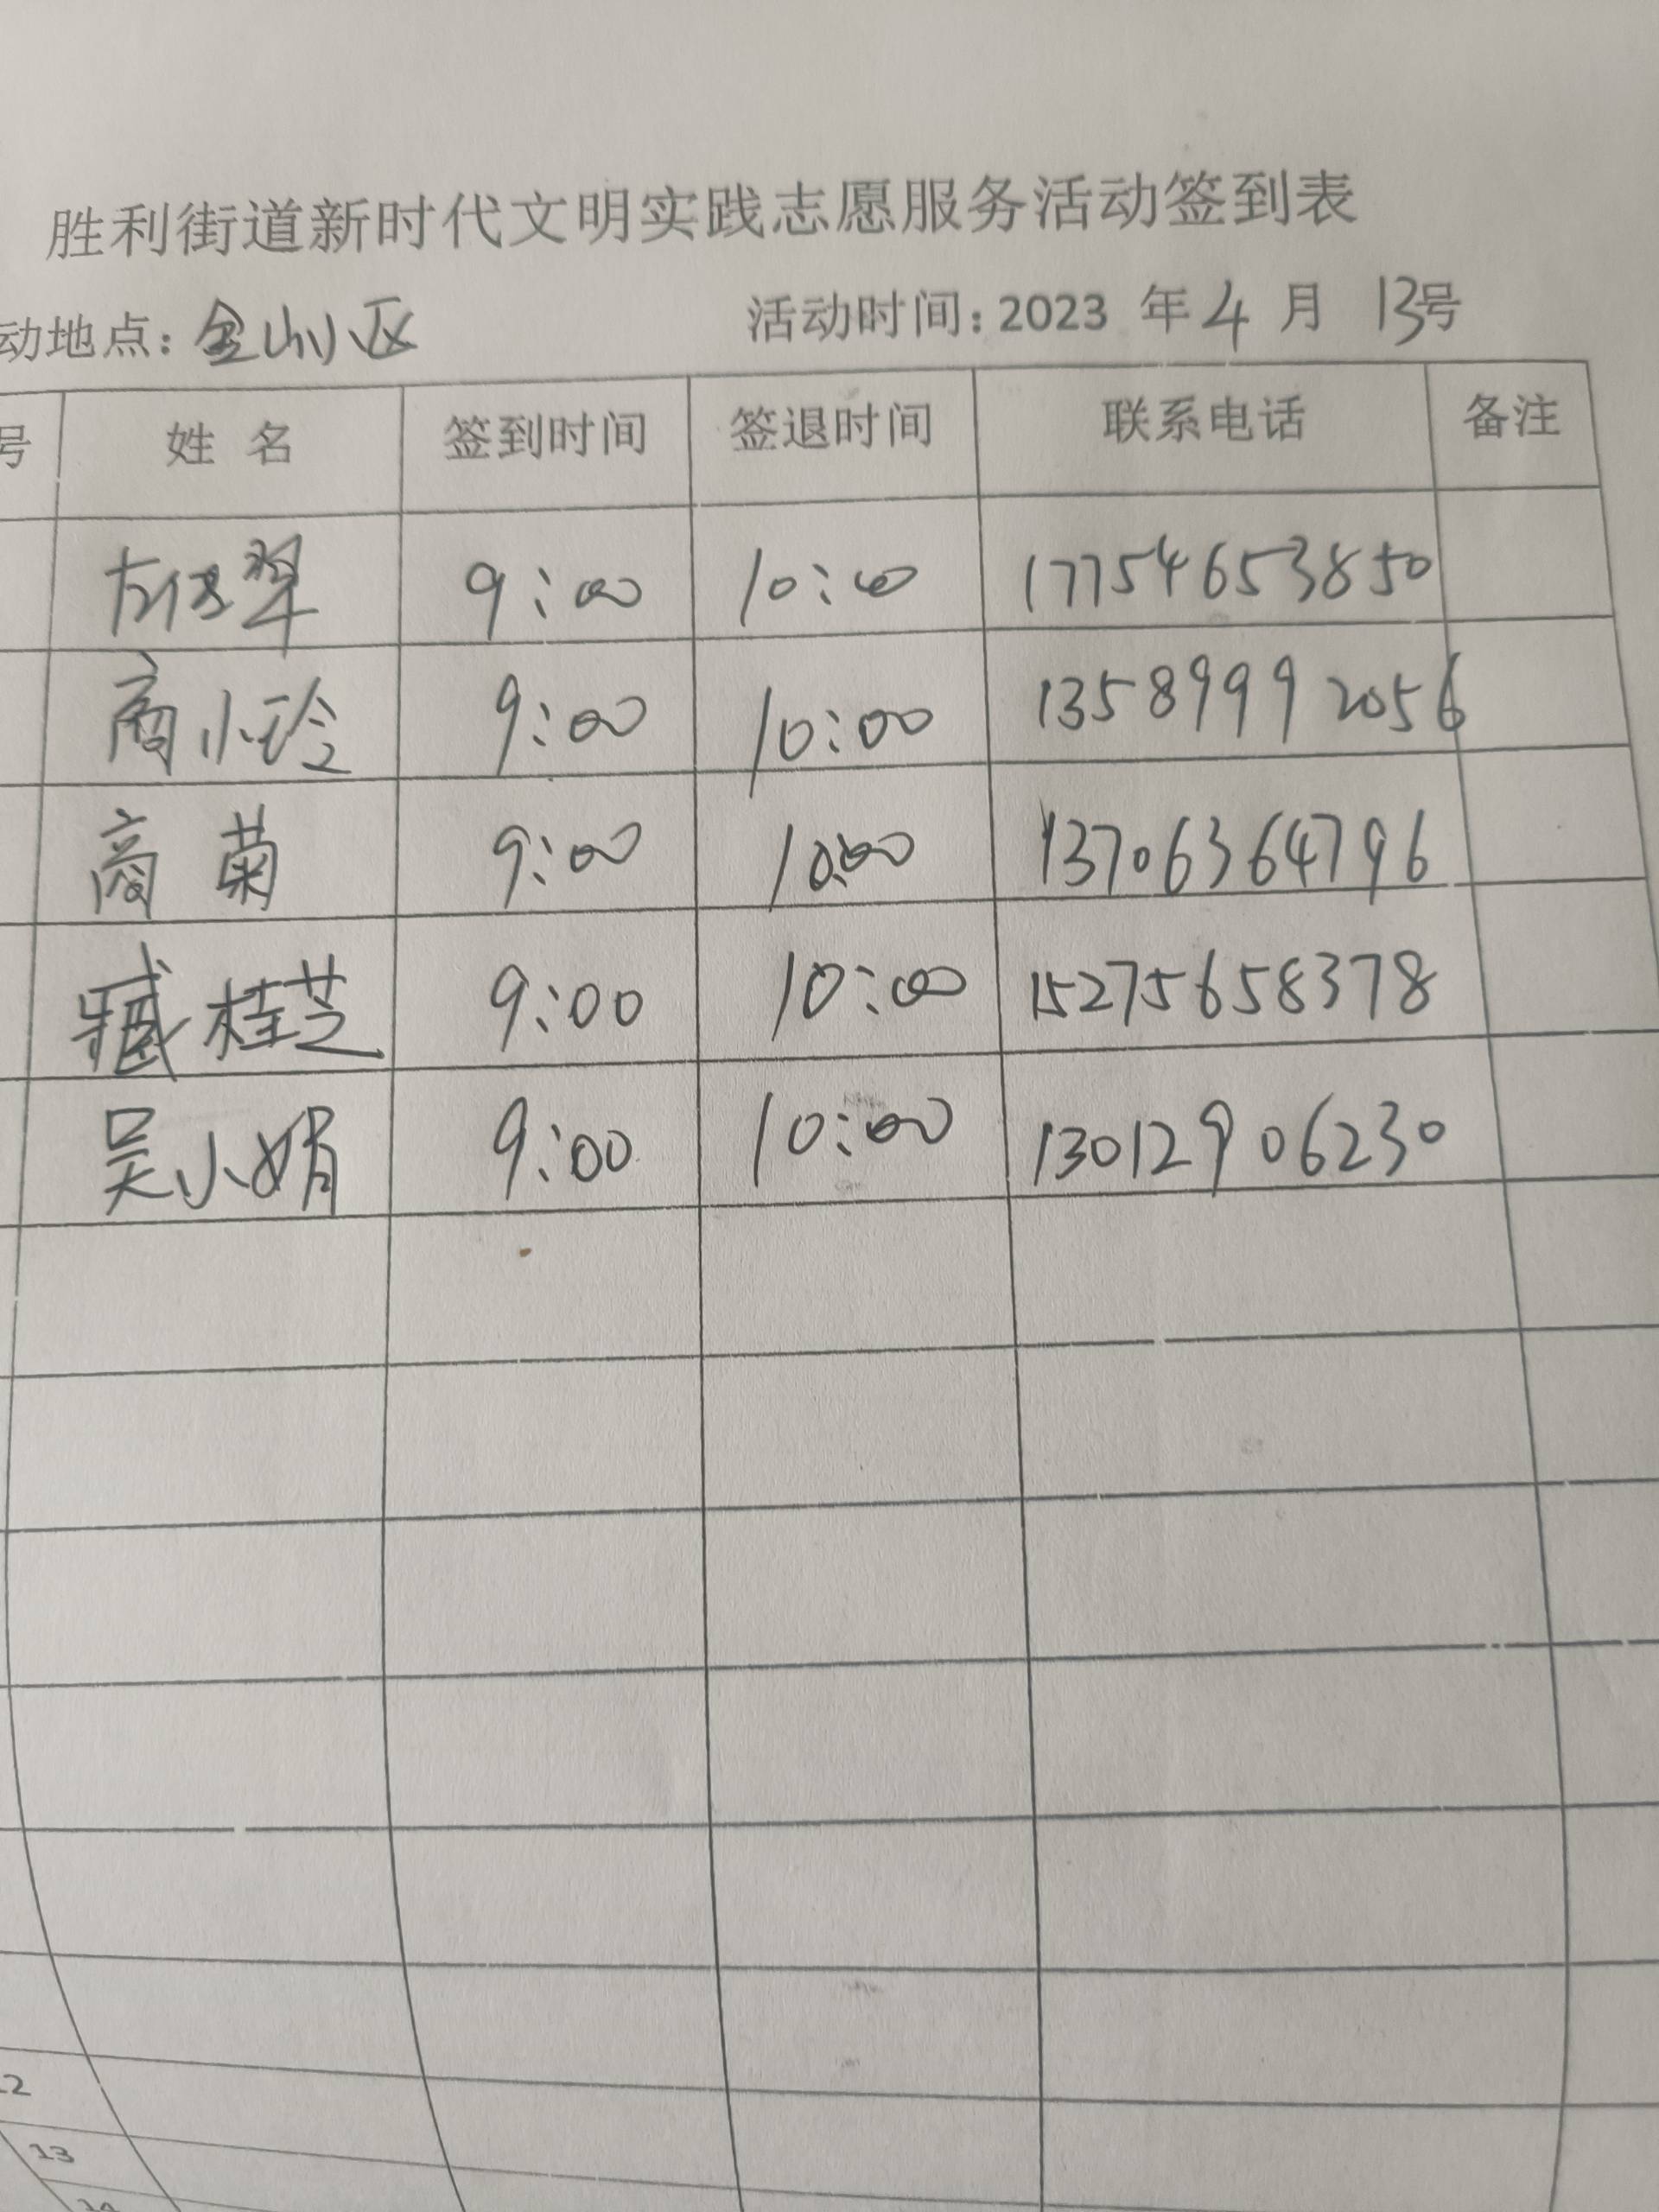 胜利街道新时代文明实践志愿服务活动签到表
动地点：金山小区 活动时间：2023 年 4 月 13号
号 姓 名 签到时间 签退时间 联系电话 备注
9:00 10:00 17754653850
商小玲 9:00 10:00 13589992056
商菊 9:00 10:00 13706364796
臧桂芝 9:00 10:00 15275658378
吴小娟 9:00 10:00 13012906230
12
13
14